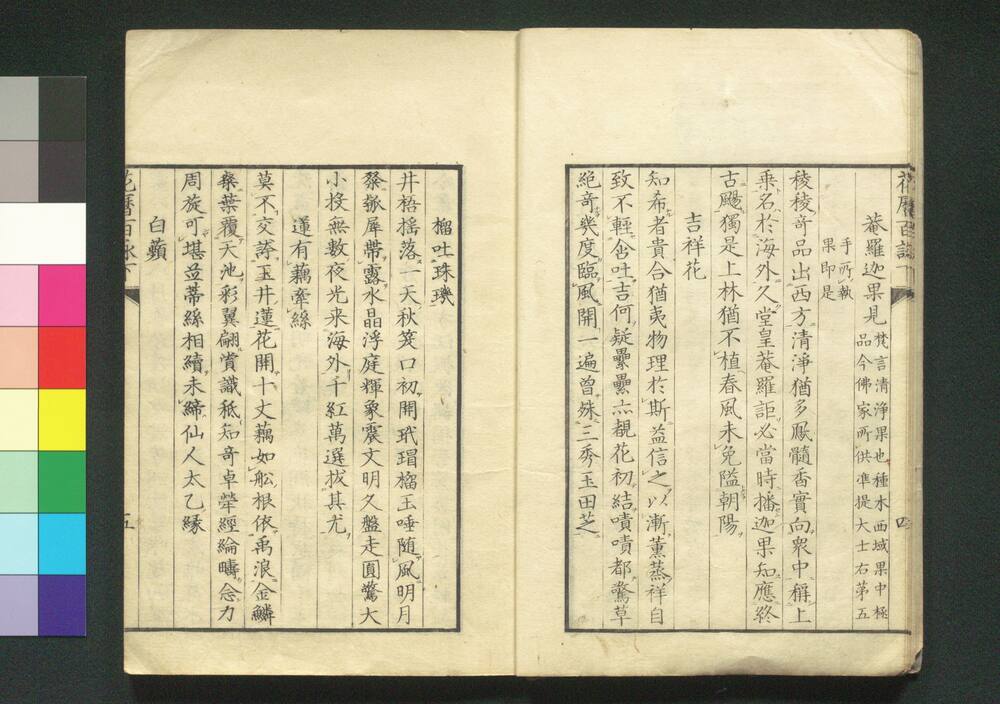 花曆百詠下
四
菴羅迦果見
梵言清淨果也種水西域果中極
品今佛家所供準提大士右第五
手所執
果即是
稜稜奇品出西方清淨猶多厭髓香實向衆中稱上
乗名於海外久堂皇菴羅詎必當時播迦果知應終
古颺獨是上林猶不植春風未免隘朝陽
吉祥花
知希者貴合猶夷物理於斯益信之以漸薰蒸祥自
致不輕含吐吉何疑纍纍亦覩花初結嘖嘖都驚草
絕奇幾度臨風開一遍曾殊三秀玉田芝
榴吐珠璣
井梧搖落一天秋笑口初開玳瑁榴玉唾随風明月
粲瓠犀帶露水晶浮庭輝象霣文明久盤走圓驚大
小投無數夜光来海外千紅萬選拔其尤
蓮有藕牽絲
莫不交誇玉井蓮花開十丈藕如舩根依禹浪金鱗
粲葉覆天池彩翼翩賞識秪知奇卓犖經綸疇念力
周旋可堪並蒂絲相續未締仙人太乙縁
白蘋
花曆百詠下
五